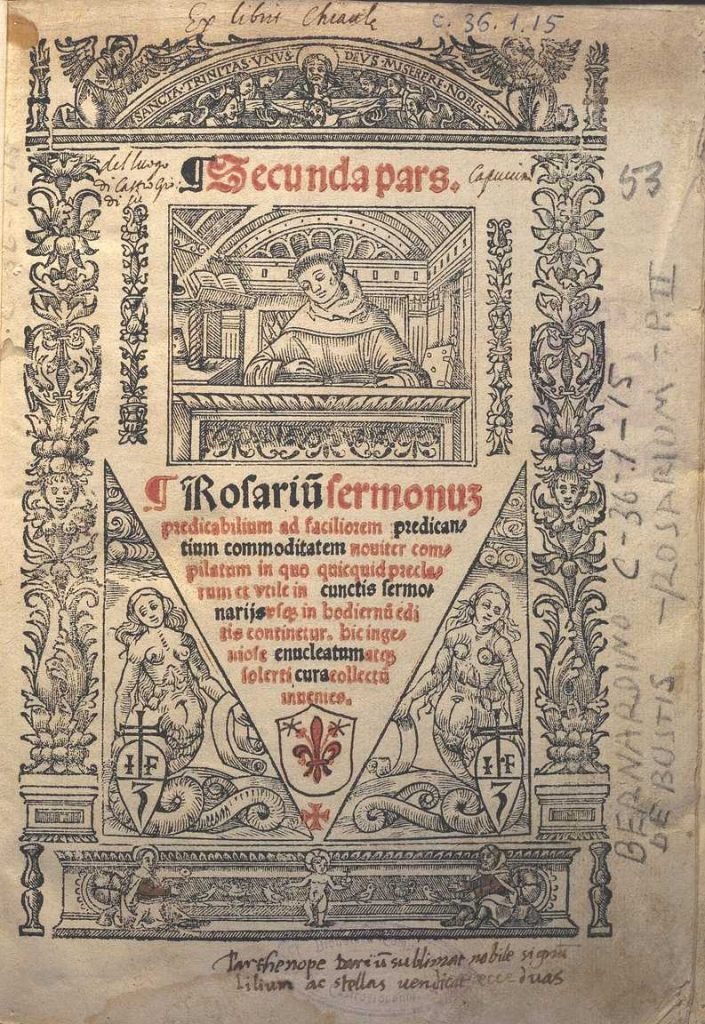 Ex libris
C. 36.1.15
SANCTA·TRINITAS·VNUS·DEVS·MISERERE·NOBIS:
del luogo
di Castrogi
¶Secunda pars.
53
¶Rosariũ sermonuȝ
predicabilium ad faciliorem predican⸗
tium commoditatem nouiter com⸗
pilatum in quo quicquid precla⸗
rum et vtile in cunctis sermo⸗
narijs vsqȝ in hodiernũ edi
tis continetur. hic inge⸗
niose enucleatum atqȝ
solerti cura collectũ
inuenies.
I F
3
I F
3
BERNARDINO C-36-1-15
DE BUSTIS -ROSARIUM-P.II
Parthenope bariũ sublimat nobile signũ
Lilium ac stellas vendicat ecce duas